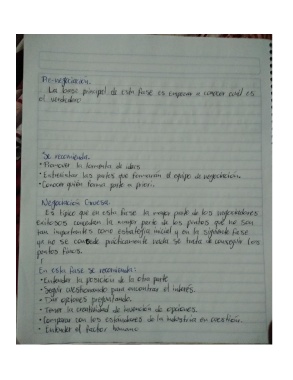 Pre-negociación.
La base principal de esta fase es empezar a conocer cuál es
el verdadero
Se recomienda:
• Promover la tormenta de ideas
• Entrevistar las partes que formarán el equipo de negociación.
• Conocer quién forma parte a priori.
Negociación Gruesa.
Es típico que en esta fase la mayor parte de los negociadores
exitosos concedan la mayor parte de los puntos que no son
tan importantes como estrategia inicial y en la siguiente fase
ya no se concede prácticamente nada se trata de conseguir los
puntos finos.
En esta fase se recomienda:
• Entender la posición de la otra parte.
• Seguir cuestionando para encontrar el interés.
• Dar opciones preguntando.
• Tener la creatividad de invención de opciones.
• Comparar con los estándares de la industria en cuestión.
• Entender el factor humano